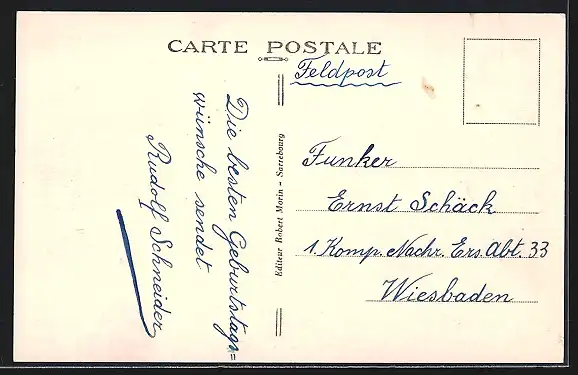 CARTE POSTALE
Feldpost
Die besten Geburtstags=
wünsche sendet
Rudolf Schneider
Editeur Robert Morin - Sarrebourg
Funker
Ernst Schäck
1. Komp. Nachr. Ers. Abt. 33
Wiesbaden